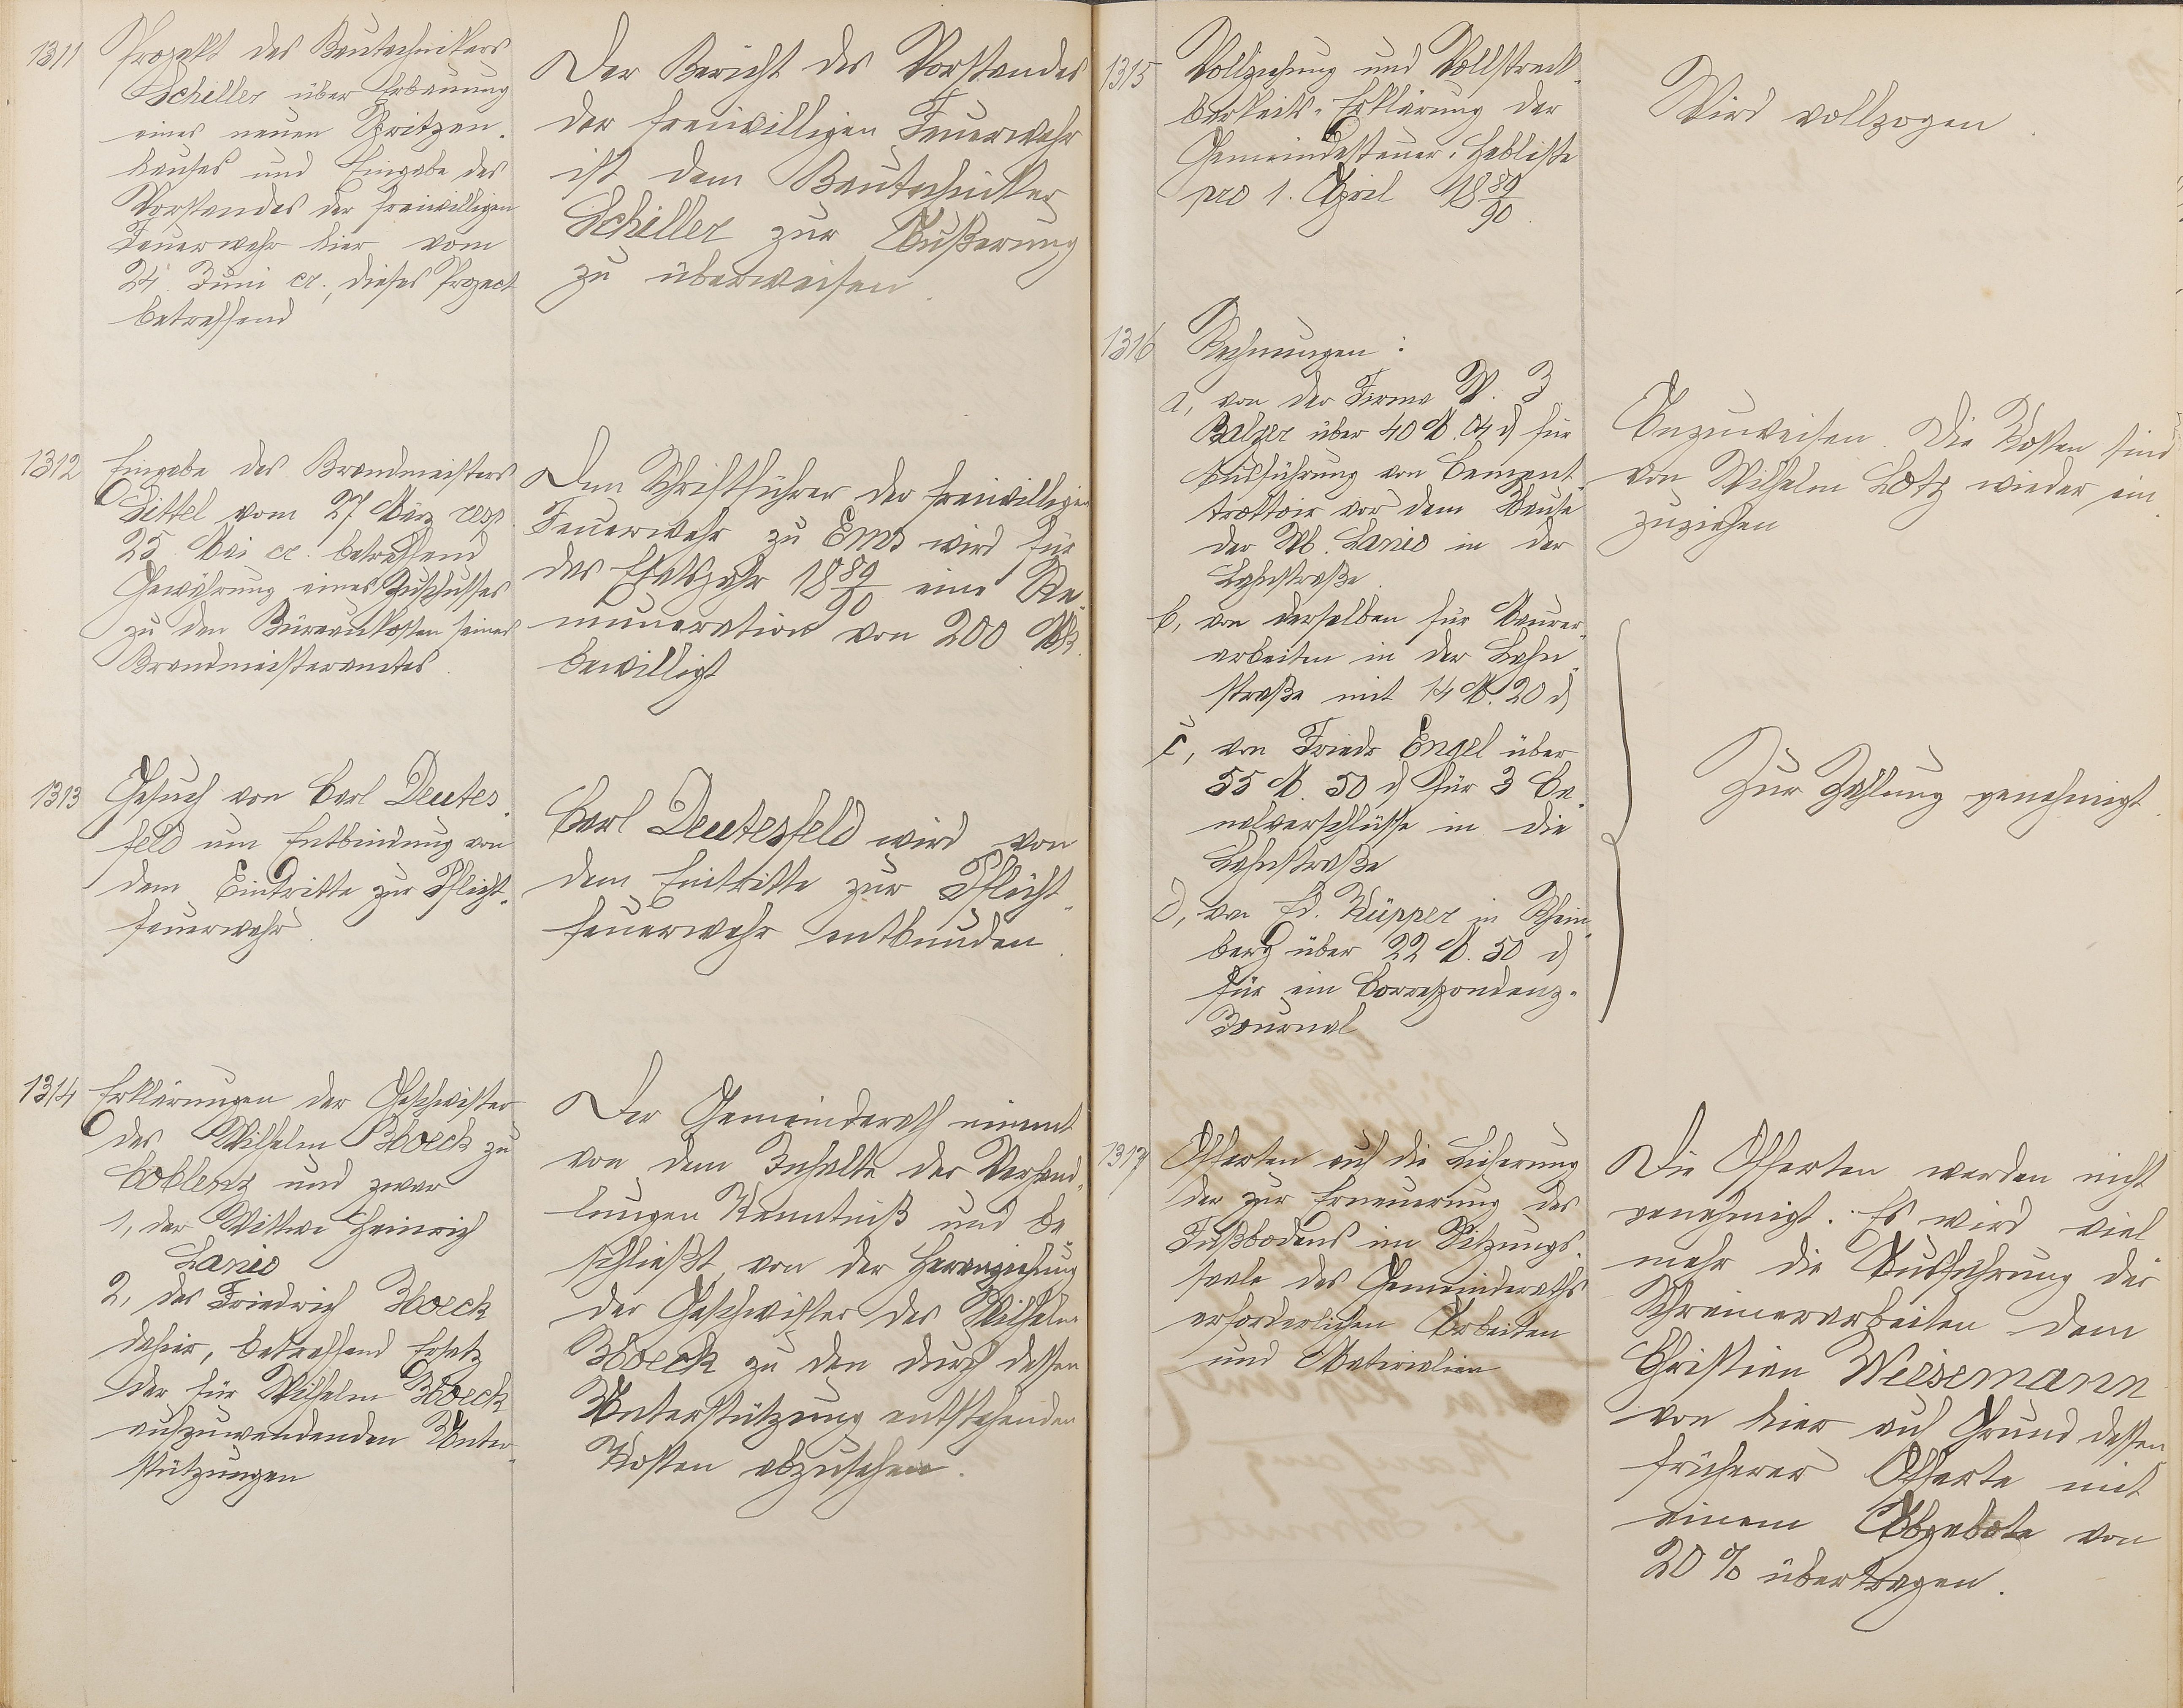 1311
Projekt des Bautechnikers
Schiller über Erbauung
eines neuen Spritzen-
hauses und Eingabe des
Vorstandes der freiwilligen
Feuerwehr hier vom
24. Juni cr., dieses Project
betreffend
Der Bericht des Vorstandes
der freiwilligen Feuerwehr
ist dem Bautechniker
Schiller zur Äußerung
zu überweisen.
1312
Eingabe des Brandmeisters
Zittel vom 27 März resp.
25. Mai cr. betreffend
Gewährung eines Zuschusses
zu den Büreaukosten seines
Brandmeisteramtes.
Dem Schriftführer der freiwilligen
Feuerwehr zu Ems wird für
das Etatsjahr 1889/90 eine Re-
muneration von 200 Mk.
bewilligt
1313
Gesuch von Carl Deutes-
feld um Entbindung von
dem Eintritte zur Pflicht-
feuerwehr.
Carl Deutesfeld wird von
dem Eintritte zur Pflicht-
feuerwehr entbunden.
1314
Erklärungen der Geschwister
des Wilhelm Bboeck zu
Coblenz und zwar
1, der Wittwe Heinrich
Lanio
2, des Friedrich Bboeck
dahier, betreffend Ersatz
der für Wilhelm Bboeck
aufzuwendenden Unter-
stützungen
Der Gemeinderath nimmt
von dem Inhalte der Verhand-
lungen Kenntniß und be-
schließt, von der Heranziehung
der Geschwister des Wilhelm
Bboeck zu den durch dessen
Unterstützung entstehenden
Kosten abzusehen.
1315
Vollziehung und Vollstreck-
barkeits-Erklärung der
Gemeindesteuer-Hebliste
pro 1. April 1889/90.
Wird vollzogen.
1316
Rechnungen:
a, von der Firma W. J.
Balzer über 40 M. 04 d für
Ausführung von Cement-
trottoir vor dem Hause
der W. Lanio in der
Lahnstraße.
Anzuweisen. Die Kosten sind
von Wilhelm Lotz wieder ein-
zuziehen
b, von derselben für Maurer-
arbeiten in der Lahn-
straße mit 14 M. 20 d
c, von Friedr Engel über
55 M. 50 d für 3 Ca-
nalverschlüsse in die
Lahnstraße
d, von Ed. Küpper in Rhein-
berg über 22 M. 50 d
für ein Correspondenz-
Journal
Zur Zahlung genehmigt.
1317
Offerten auf die Lieferung
der zur Erneuerung des
Fußbodens im Sitzungs-
saale des Gemeinderaths
erforderlichen Arbeiten
und Materialien
Die Offerten werden nicht
genehmigt. Es wird viel-
mehr die Ausführung der
Schreinerarbeiten dem
Christian Weisemann
von hier auf Grund dessen
früherer Offerte mit
einem Abgebote von
20 % übertragen.